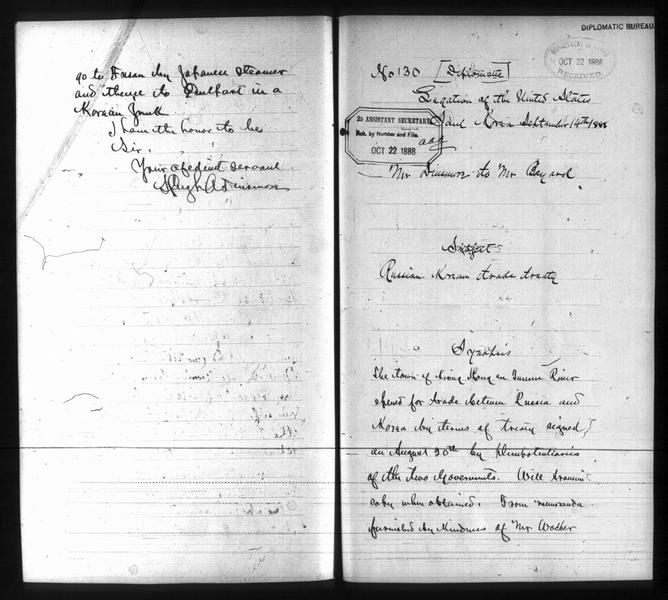 go to Fusan by Japanese steamer
and thence to in a
Korean Junk
I have the honor to be
Sir,
Your obedient servant
Hugh A Dinsmore
DIPLOMATIC BUREAU
DEPARTMENT OF STATE
OCT 22 1888
RECEIVED
No 130 [Diplomatic]
Legation of the United States
Seoul Korea September 14th 1888
2D ASSISTANT SECRETARY
Ack. by Number and File.
OCT 22 1888
Mr Dinsmore to Mr Bayard
Subject
Russian Korean trade treaty
Synopsis
The town of Kiong Hung on Tumen River
opened for trade between Russia and
Korea by terms of treaty signed
on August 20th by plenipotentiaries
of the two Governments. Will transmit
copy when obtained. From memoranda
furnished by kindness of Mr Waeber